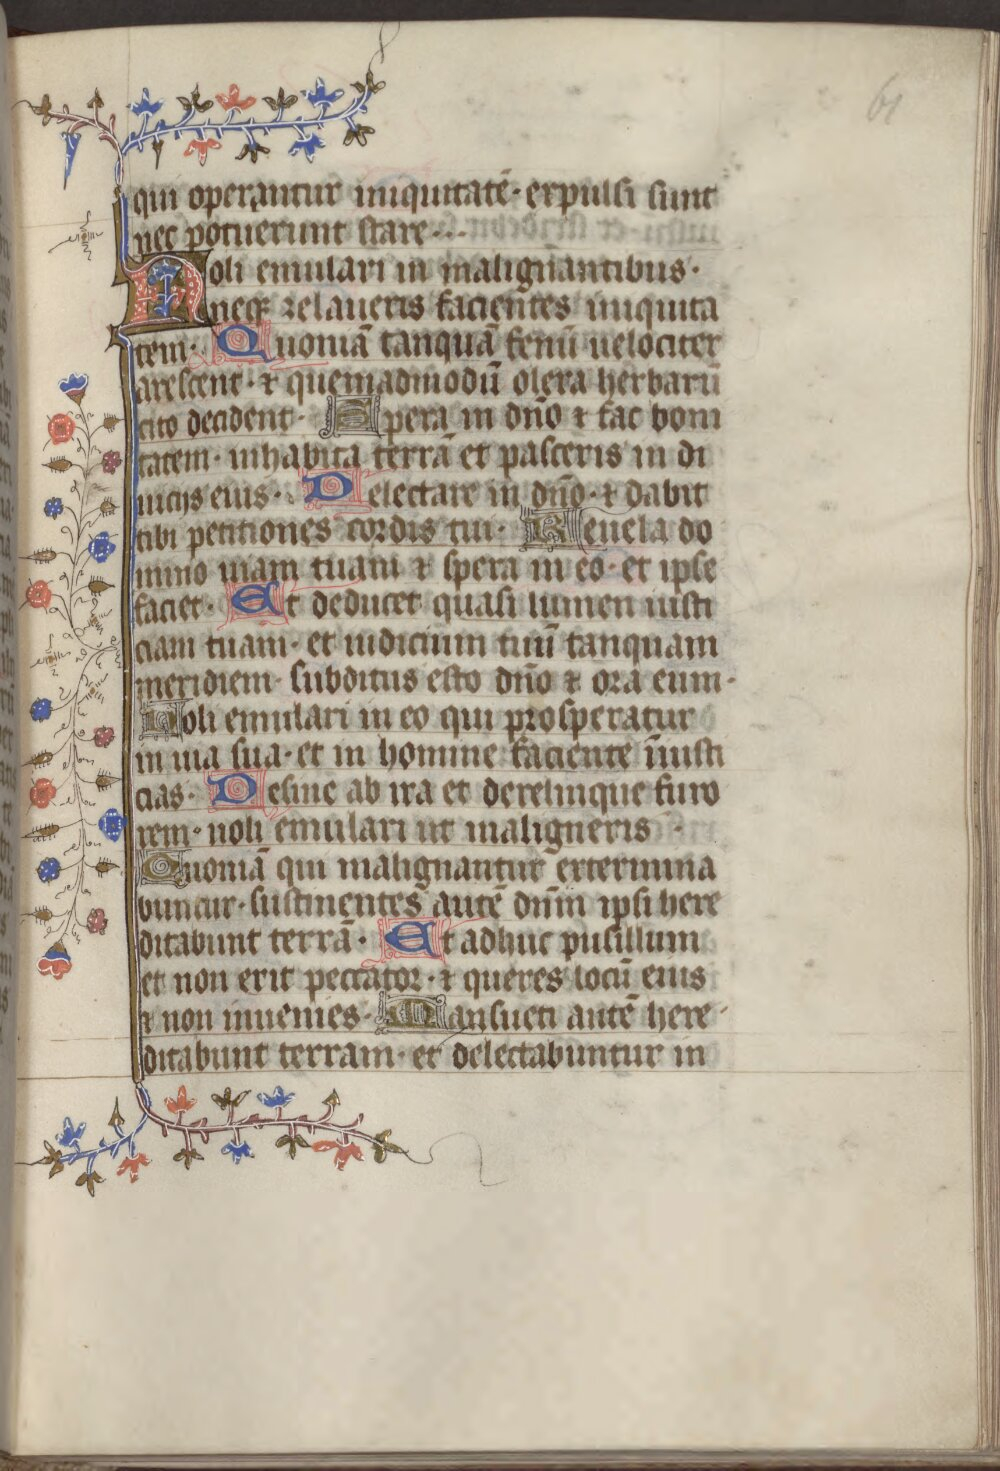 61
qui operantur iniquitatē· expulsi sunt
nec potuerunt stare·
Noli emulari in malignantibus·
neqꝫ zelaueris facientes iniquita
tem· Quoniā tanquā fenū uelociter
arescent· ⁊ quemadmodū olera herbarū
cito decident· Spera in dn̄o ⁊ fac boni
tatem· inhabita terrā et pasceris in di
uicijs eius· Delectare in dn̄o· ⁊ dabit
tibi petitiones cordis tui· Reuela do
mino uiam tuam ⁊ spera in eo· et ipse
faciet· Et deducet quasi lumen iusti
ciam tuam· et iudicium tuū tanquam
meridiem· subditus esto dn̄o ⁊ ora eum·
Noli emulari in eo qui prosperatur
in uia sua· et in homine faciente īiusti
cias· Desine ab ira et derelinque furo
rem· noli emulari ut maligneris·
Quoniā qui malignantur extermina
buntur· sustinentes autē dn̄m ipsi here
ditabunt terrā· Et adhuc pusillum
et non erit peccator· ⁊ queres locū eius
⁊ non inuenies· Mansueti autē here
ditabunt terram· et delectabuntur in